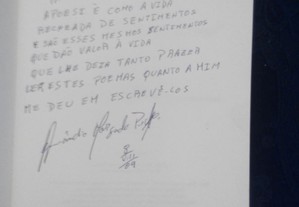 A POESI É COMO A VIDA
RECHEADA DE SENTIMENTOS
E SÃO ESSES MESMOS SENTIMENTOS
QUE DÃO VALOR À VIDA
QUE LHE DEIA TANTO PRAZER
LER ESTES POEMAS QUANTO A MIM
ME DEU EM ESCREVÊ-LOS